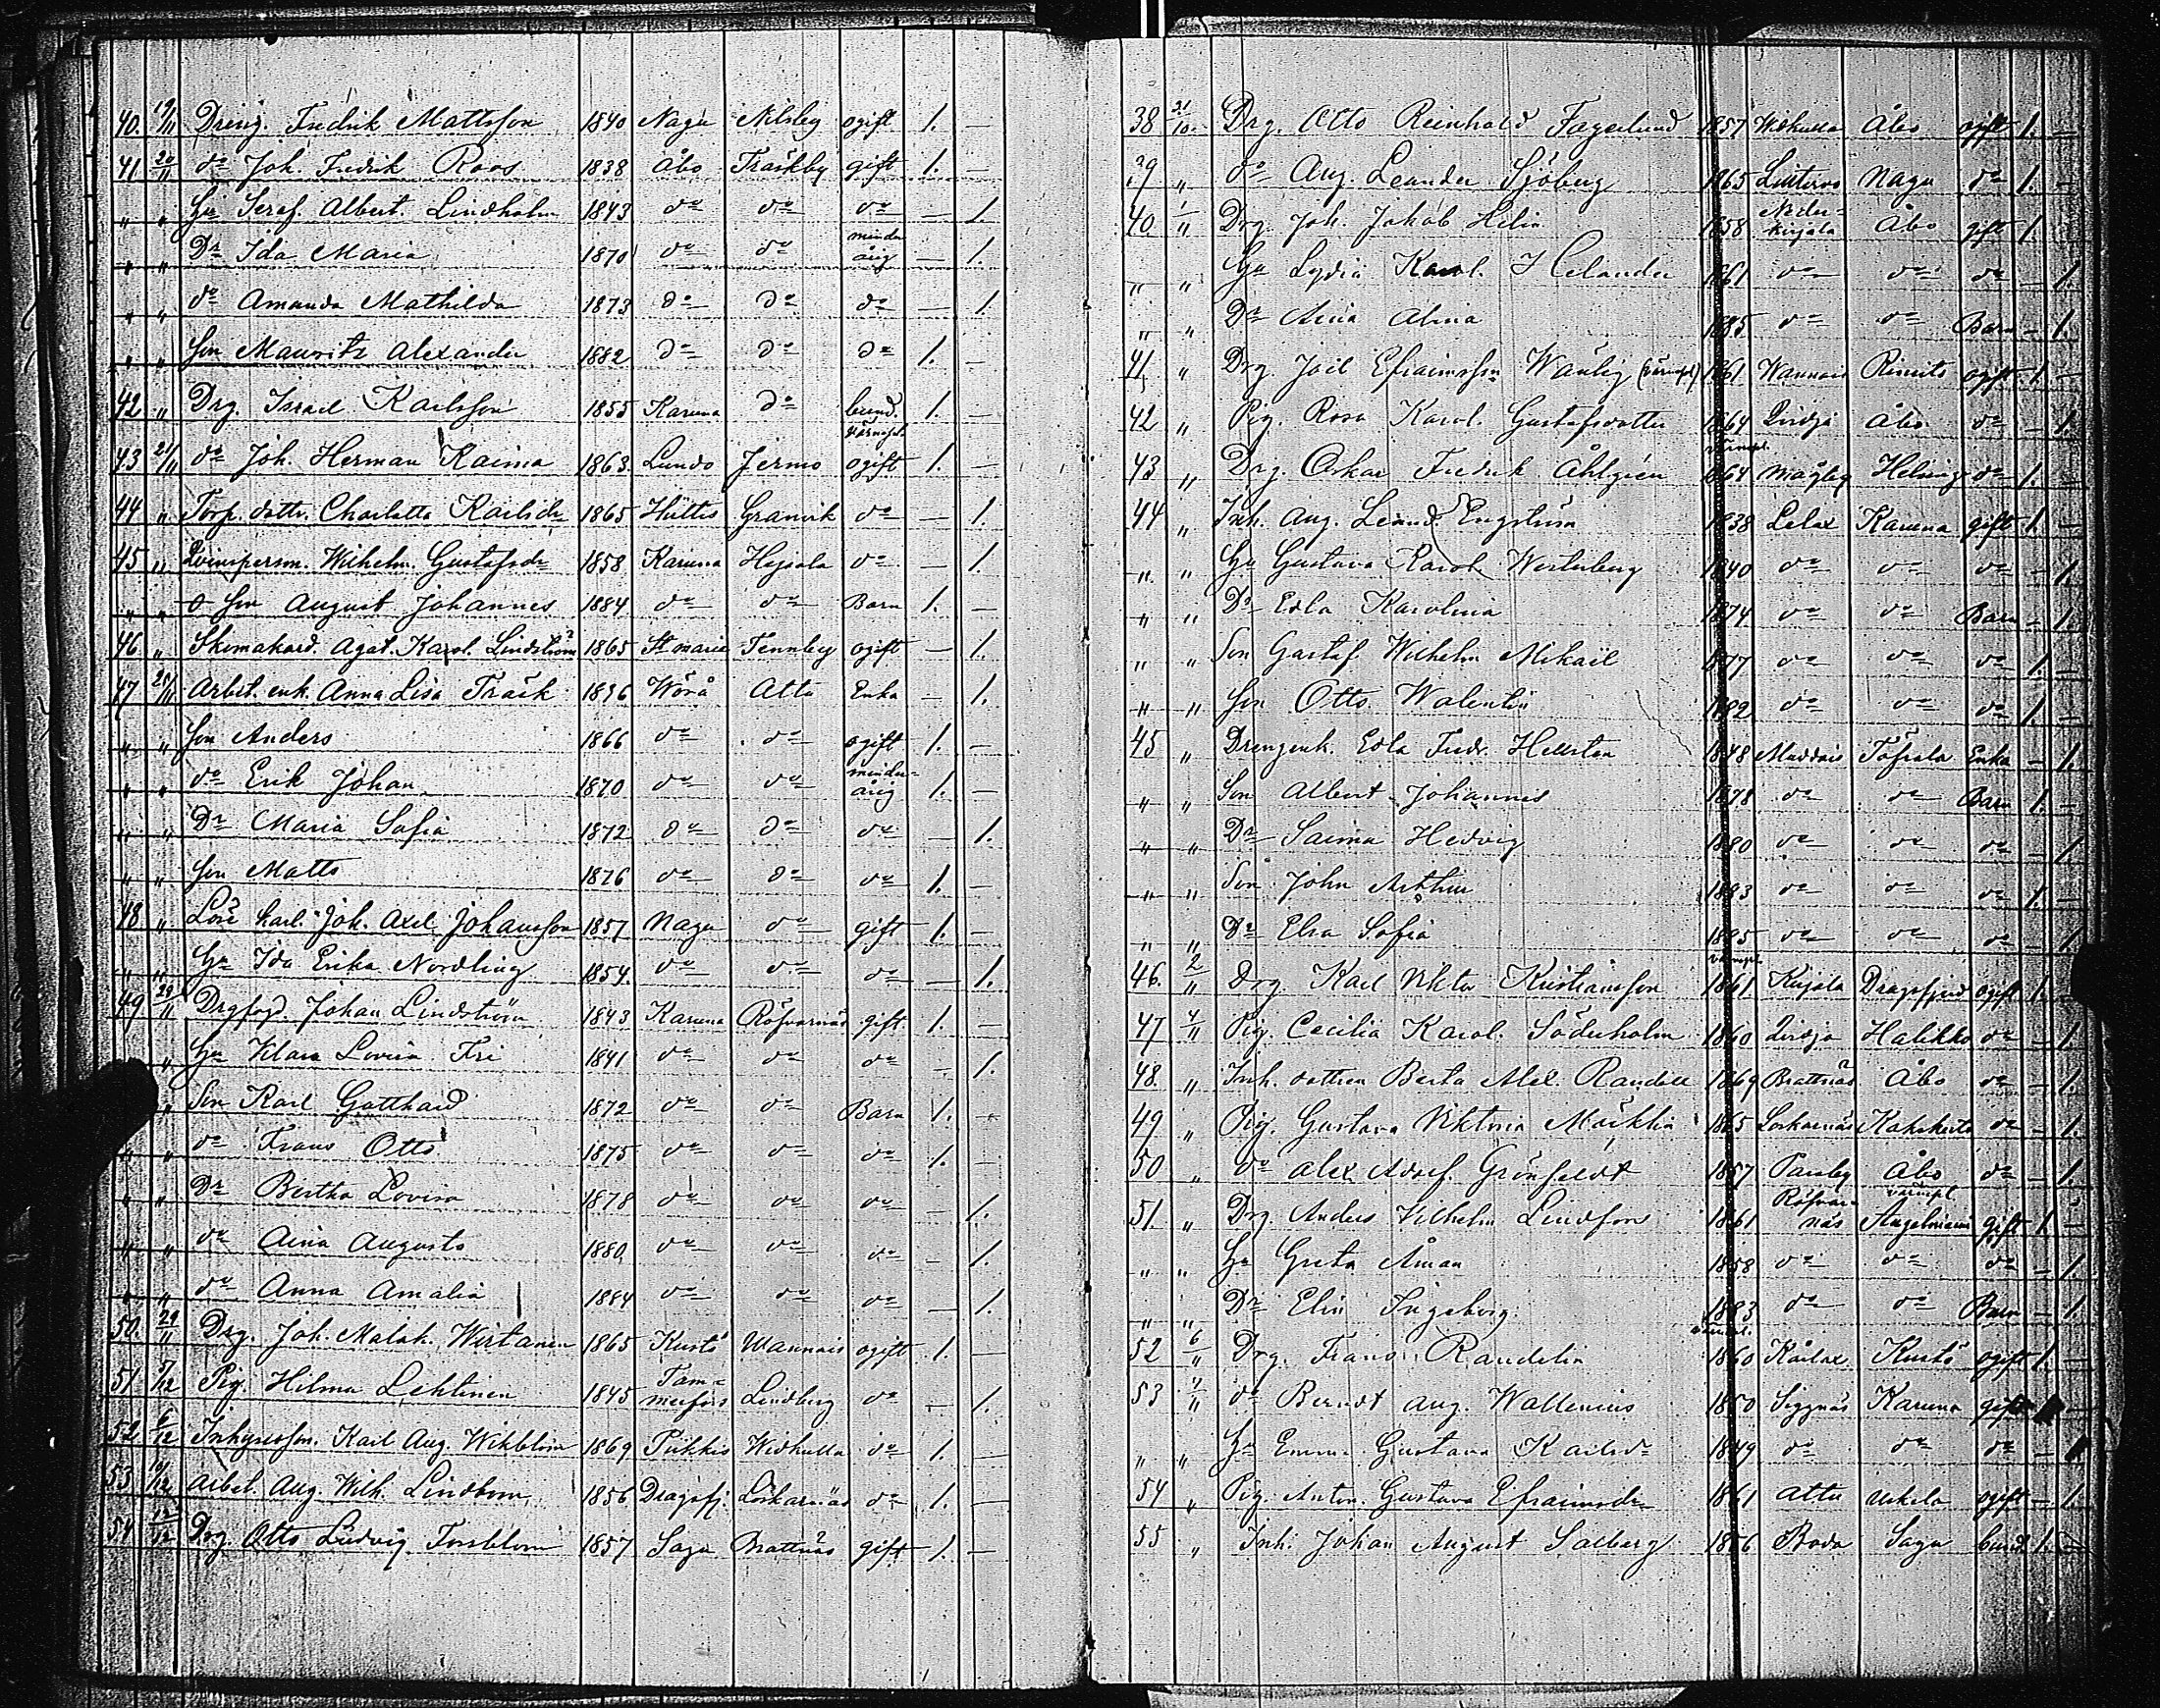 40. 19/11 Dreng. Fredrik Mattsson 1840 Nagu Nilsby ogift 1. —
41 20/11 do Joh. Fredrik Roos 1838 Åbo Träskby gift 1. —
" " Hu Seraf. Albert. Lindholm 1843 do do do — 1.
" " Dr Ida Maria 1870 do do minder årig — 1.
" " do Amanda Mathilda 1873 do do do — 1.
" " Son Mauritz Alexander 1882 do do do 1. —
42 " Drg. Israel Karlsson 1855 Karuna do 1. —
43 21/11 do Joh. Herman Kaima 1863. Lundo Jermo värnepl. ogift 1. —
44 " Torp. dottr. Charlotta Karlsdr 1865 Hittis Granvik do — 1.
45 " Qvinsperson. Wilhelm. Gustafsdr 1858 Karuna Hajsala do — 1.
" " o Son August Johannes 1884 do do Barn 1. —
46. " Skomakard. Agat. Karol. Lindström 1865 St marie Tennby ogift — 1.
47 Arbet. enk. Anna Lisa Träsk 1836 Wörå Attu Enka — 1.
" " Son Anders 1866 do do ogift 1. —
" " do Erik Johan 1870 do do minder= årig 1. —
" " Dr Maria Sofia 1872 do do do — 1.
" " Son Matts 1876 do do do 1. —
48 " Löse karl. Joh. Axel Johansson 1857 Nagu do gift 1. —
" " Hu Ida Erika Nordling 1854. do do do — 1.
49 29/11 Drgfogd. Johan Lindström 1843 Karuna Röfvarnäs gift 1. —
" Hu Klara Lovisa Fri 1841 do do do — 1.
" Son Karl Gotthard 1872 do do Barn 1. —
" " do Frans Otto 1875 do do do 1. —
" " Dr Bertha Lovisa 1878 do do do — 1.
" " do Aina Augusta 1880 do do do — 1.
" " do Anna Amalia 1884 do do do — 1.
50. 29/11 Drg. Joh. Malak. Wirtanen 1865 Kustö Wannais ogift 1. —
51 5/12 Pig. Hilma Lehtinen 1845 Tam= merfors Lindberg do — 1.
52 6/12 Inhysesson. Karl Aug. Wikblom 1869 Pikkis Widkulla do 1. —
53 10/12 Arbet. Aug. Wilh. Lindbom 1856 Dragsfj. Loskarnäs do 1. —
54 12/12 Drg. Otto Ludvig Forsblom 1857 Sagu Brattnäs gift 1. —
38 21/10. Drg. Otto Reinhold Fagerlund 1857 Widkulla Åbo ogift 1. —
39 " do Aug. Leander Sjöberg 1865 Nagu do 1. —
40 1/11 Drg. Joh. Jakob Helin 1858 Neder= kirjala Åbo gift 1. —
" " Hu Lydia Karol. Helander 1861 do do do — 1.
" " Dr Aina Alina 1885 do do Barn — 1.
41 " Drg Joel Efraimsson Wänlig (värnepl) 1861 Wannais Rimito ogift 1. —
42 " Pig. Rosa Karol. Gustafsdotter 1864 Qvidja Åbo do — 1.
43 " Drg. Oskar Fredrik Åhlgrén värnepl. 1864 Mågby Helsing do 1. —
44 " Inh. Aug. Leand. Engström 1838 Lelax Karuna gift 1. —
" " Hu Gustava Karol. Westerberg 1840 do do do — 1.
" " Dr Edla Karolina 1874 do do Barn — 1.
" " Son Gustaf Wilhelm Mikael 1877 do do do 1. —
" " Son Otto Walentin 1882 do do do 1. —
45 " Drengenk. Edla Fredr. Hellsten 1848 Muddais Töfsala Enka — 1.
" " Son Albert Johannes 1878 do do Barn 1. —
" " Dr Saima Hedvig 1880 do do do — 1.
" " Son John Arthur 1883 do do do 1. —
" " Dr Elsa Sofia 1885 do do do — 1.
46. 2/11 Drg. Karl Viktor Kristiansson värnepl. 1861 Kirjala Dragsfjerd ogift 1. —
47 4/11 Pig. Cecilia Karol. Söderholm 1860 Qvidja Halikko do — 1.
48. " Inh. dottren Berta Alex. Randell 1869 Brattnäs Åbo do — 1.
49 " Pig. Gustava Viktoria Mörklin 1865 Loskarnäs Kakskerta do — 1.
50 " do Alex. Adolf. Grönfeldt 1857 Parsby Åbo do — 1.
51. " Drg. Anders Vilhelm Lindfors 1861 Röfvar= näs värnepl Angelniemi gift 1. —
" " Hu Greta Åman 1858 do do do — 1.
" " Dr Elin Ingeborg. 1883 do do Barn — 1.
52 6/11 Drg. Frans Randelin värnepl. 1860 Kårlax Kustö ogift 1. —
53 do Berndt Aug. Wallenius 1850 Siggnäs Karuna gift 1 —
" " Hu Emma Gustava Karlsdr 1849 do do do — 1
54 " Pig. Anton. Gustava Efraimsdr 1861 Attu Uskela ogift — 1.
55 " Inh. Johan August Salberg 1856 Boda Sagu 1. —